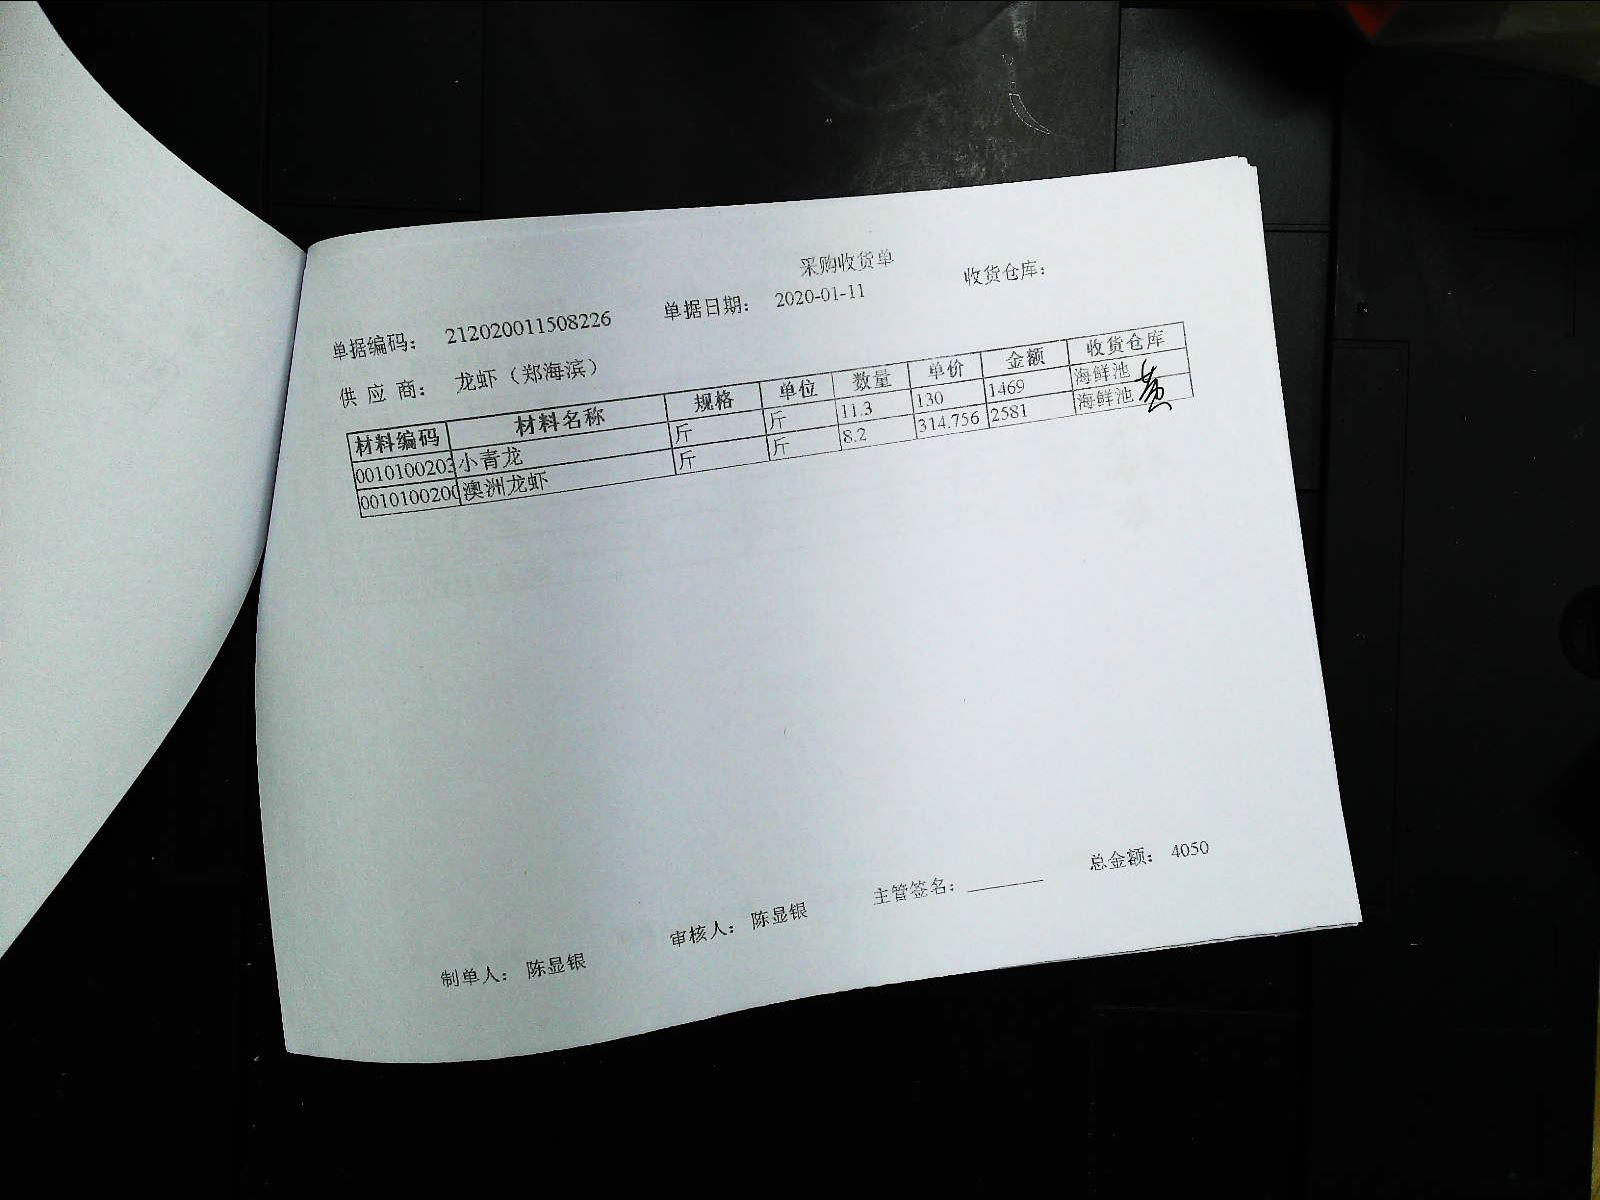 采购收货单
单据编码： 212020011508226 单据日期： 2020-01-11 收货仓库：
供 应 商： 龙虾（郑海滨）
材料编码 材料名称 规格 单位 数量 单价 金额 收货仓库
001010020 小青龙 斤 斤 11.3 130 1469 海鲜池
001010020 澳洲龙虾 斤 斤 8.2 314.756 2581 海鲜池
总金额： 4050
制单人： 陈显银 审核人： 陈显银 主管签名：